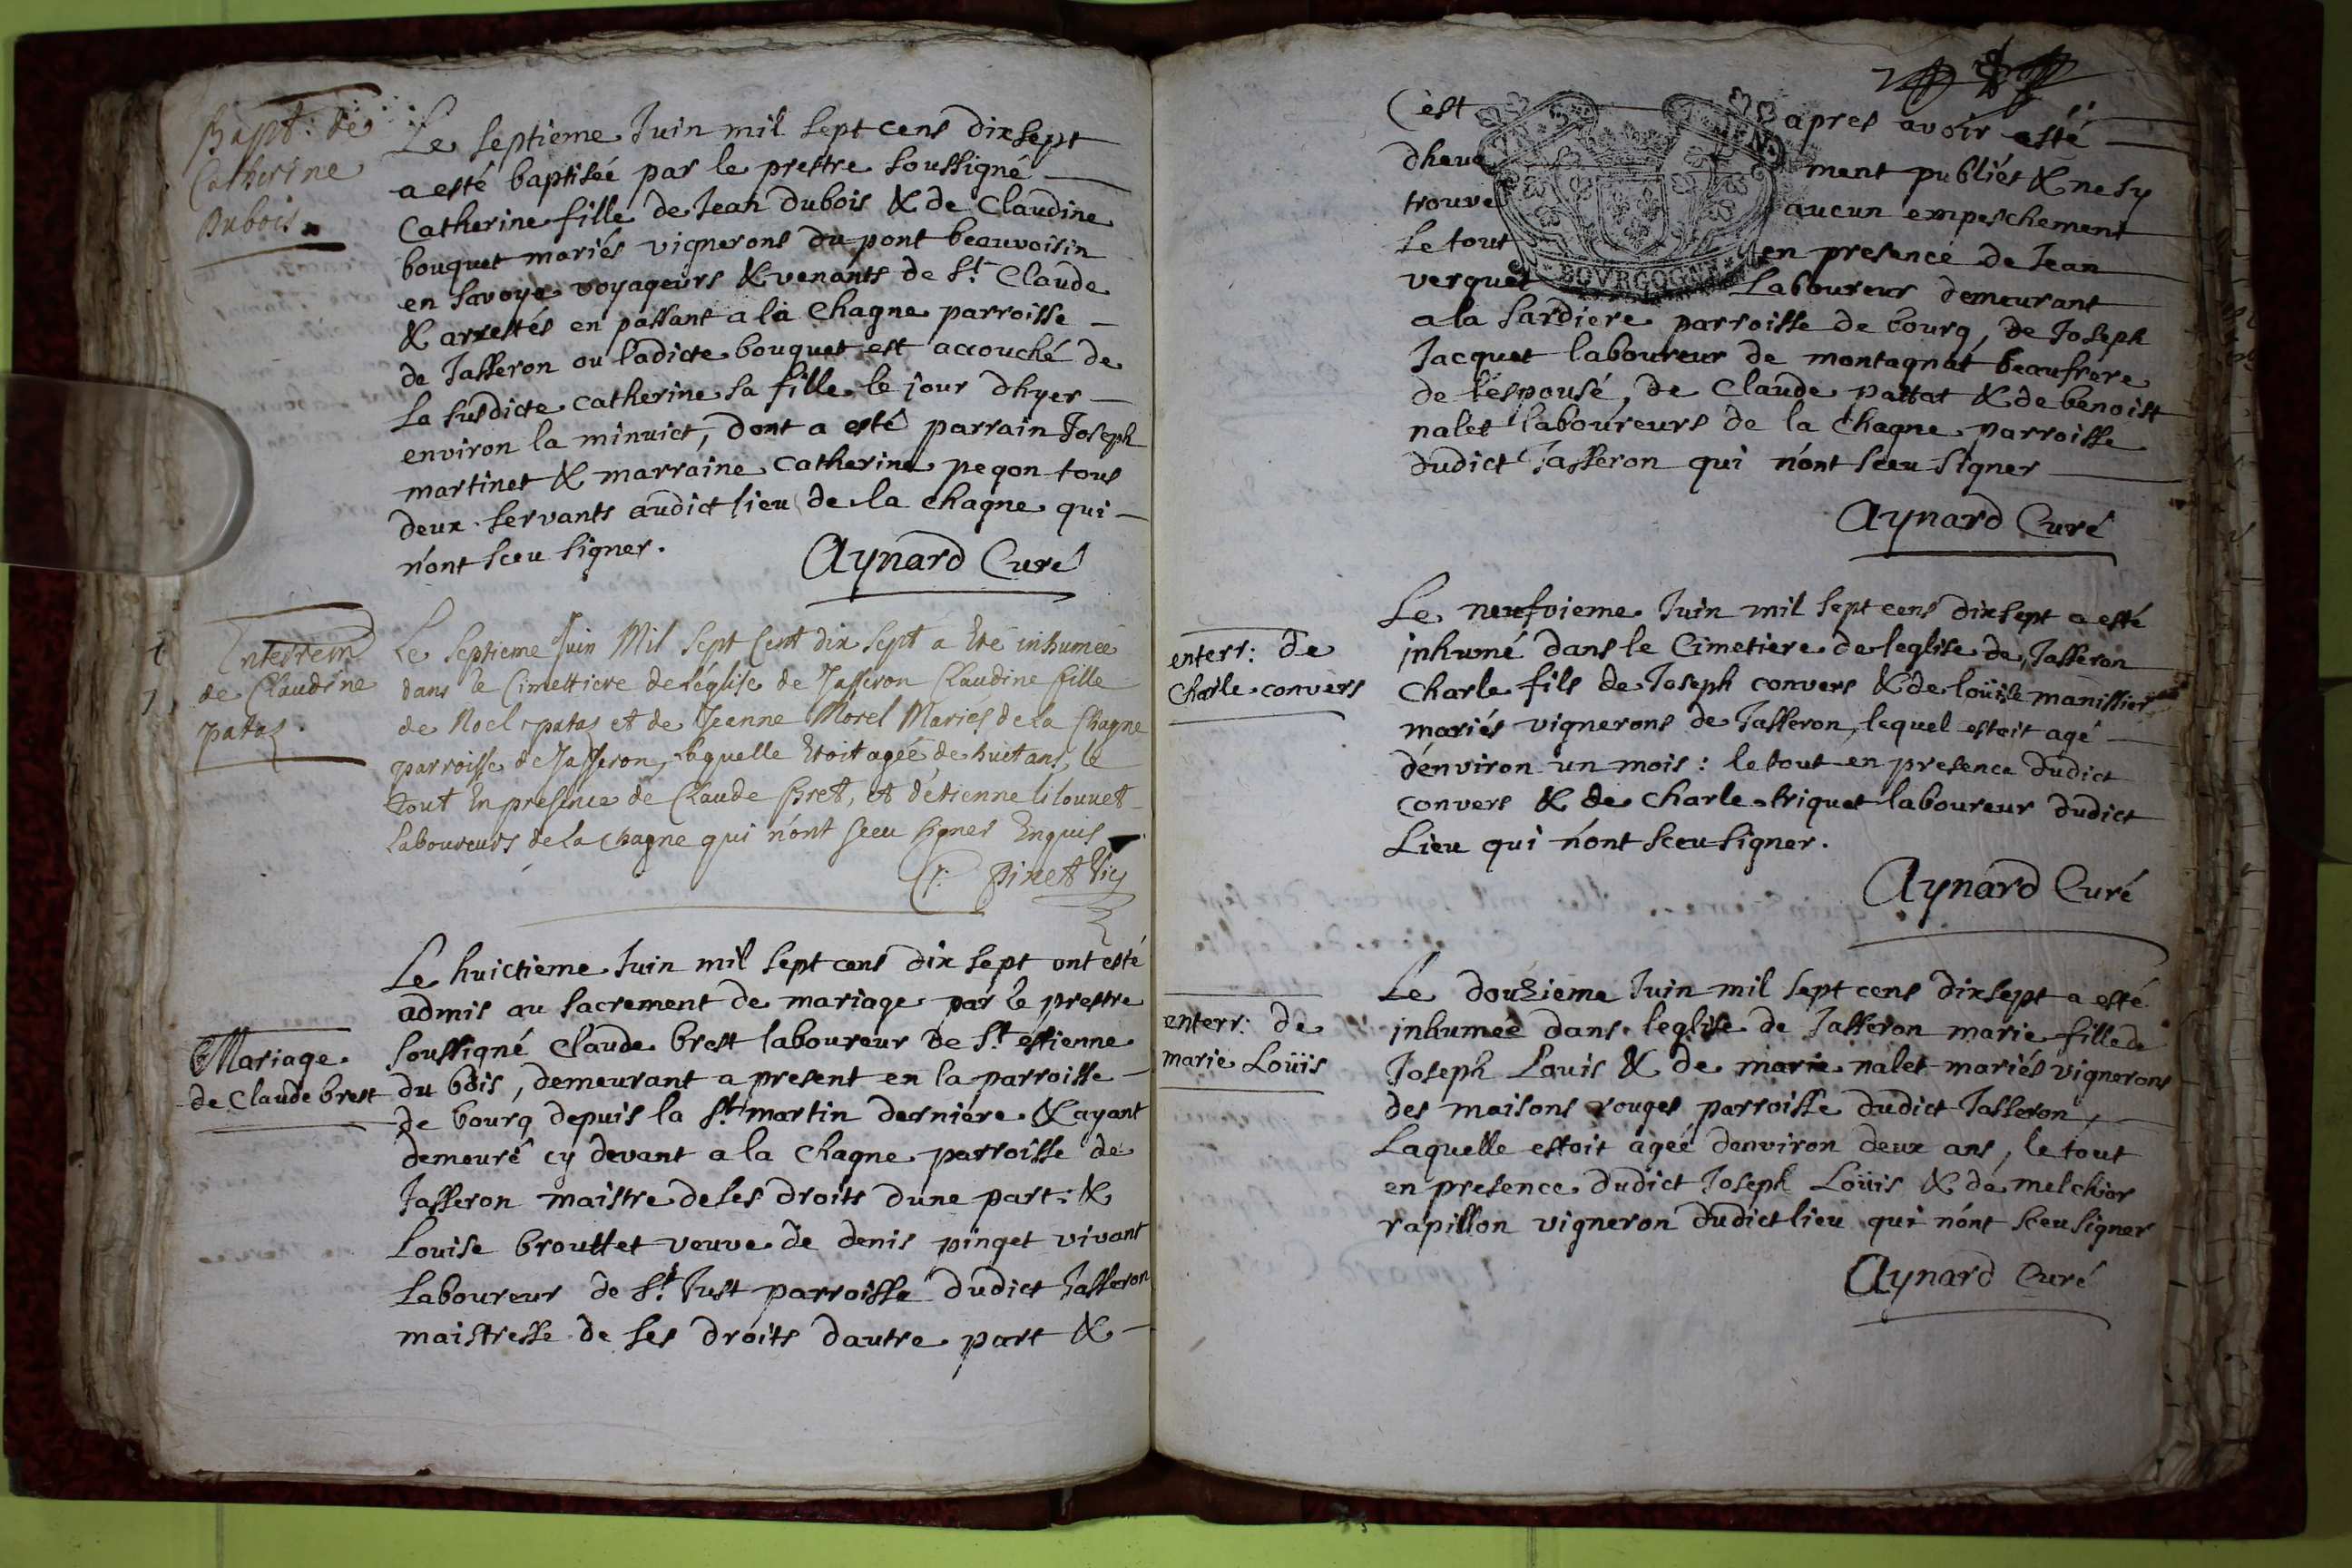 Bapt: de
Catherine
Dubois.
Le septieme Juin mil sept cens dixsept
a esté baptisée par le prestre soussigné
Catherine fille de Jean dubois & de Claudine
bouquet mariés vignerons du pont beauvoisin
en savoye voyageurs & venants de St Claude
& arrestés en passant a la Chagne parroisse
de Jasseron ou ladicte bouquet est accouché de
la susdicte catherine sa fille le jour dhyer
environ la minuict, dont a esté parrain Joseph
martinet & marraine catherine pegon tous
deux servants audict lieu de la chagne qui
n'ont sceu signer.
Aynard Curé
Enterrem
de Claudine
pataz
Le Septieme Juin Mil Sept Cent dix sept a Eté inhumée
dans le Cimettiere de l'église de Jasseron Claudine fille
de Noel pataz et de Jeanne Morel Mariés de la Chagne
parroisse de Jasseron, laquelle Etoit agée de huit ans, le
tout En presence de Claude Bret, et d'étienne
Laboureurs de la chagne qui n'ont sceu signer Enquis
Pinet Vic
Mariage
de Claude brest
Le huictieme Juin mil sept cens dix sept ont esté
admis au sacrement de mariage par le prestre
soussigné Claude brest laboureur de St estienne
du bois, demeurant a present en la parroisse
de bourg depuis la St martin derniére & ayant
demeuré cy devant a la Chagne parroisse de
Jasseron maistre de ses droits dune part: &
Louise brousset veuve de denis pinget vivant
Laboureur de St Just parroisse dudict Jasseron
maistresse de ses droits dautre part &
C'est apres avoir esté
dheue ment publiés & ne sy
trouve aucun empeschement
Le tout en presence de Jean
verquet Laboureur demeurant
BOVRGOGNE
a la sardiere parroisse de bourg, de Joseph
Jacquet laboureur de montagnat beaufrere
de l'espousé, de Claude pattat & de benoist
nalet laboureurs de la Chagne parroisse
dudict Jasseron qui n'ont sceu signer
Aynard Curé
enterr: de
Charle convers
Le neufvieme Juin mil sept cens dixsept a esté
inhumé dans le Cimetiere de leglise de Jasseron
Charle fils de Joseph convers & de loüise manissier
mariés vignerons de Jasseron, lequel estoit agé
d'environ un mois: le tout en presence dudict
convers & de charle triquet laboureur dudict
Lieu qui n'ont sceu signer.
Aynard Curé
enterr: de
marie Loüis
Le douzieme Juin mil sept cens dixsept a esté
inhumée dans leglise de Jasseron marie fille de
Joseph Louis & de marie nalet mariés vignerons
des maisons rouges parroisse dudict Jasseron,
Laquelle estoit agée denviron deux ans, le tout
en presence dudict Joseph Loüis & de melchior
rapillon vigneron dudict lieu qui n'ont sceu signer
Aynard Curé